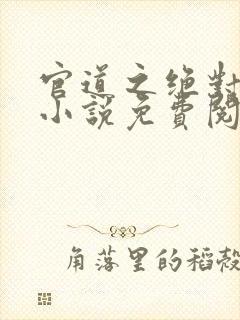 官道之绝对
小说免费阅
角落里的稻殼